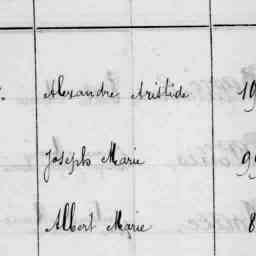 Alexandre Aristide 19
Joseph Marie 99
Albert Marie 8